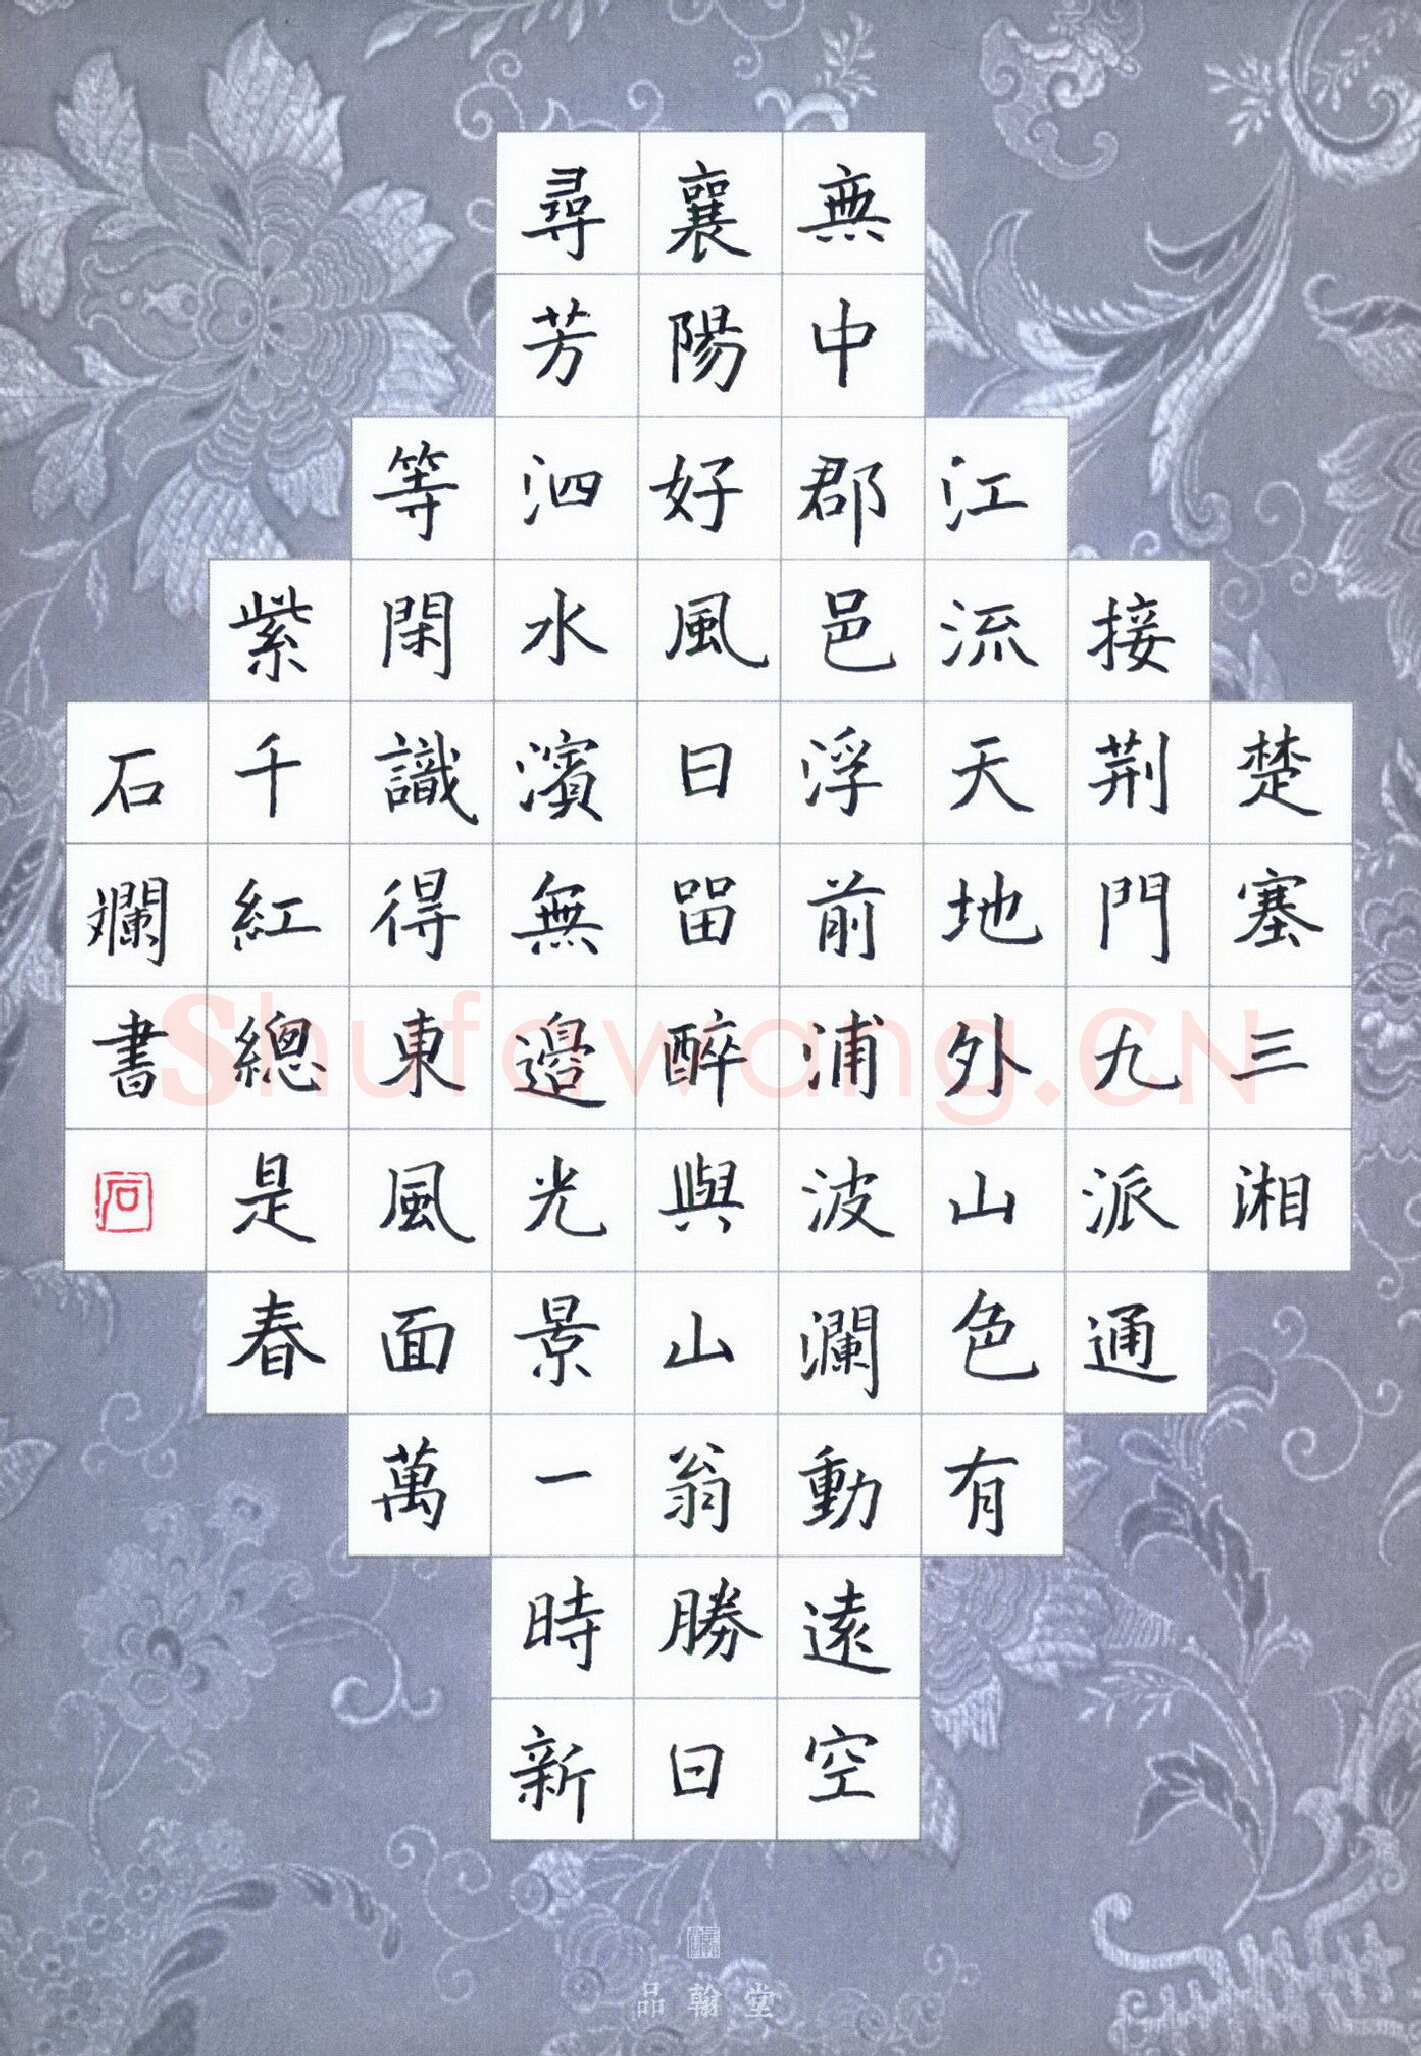 楚塞三湘
接荆門九派通
江流天地外山色有
無中郡邑浮前浦波瀾動遠空
襄陽好風日畱醉與山翁勝日
尋芳泗水濱無邊光景一時新
等閑識得東風面萬
紫千紅總是春
石斕書
石
品翰堂
Shufawang.CN